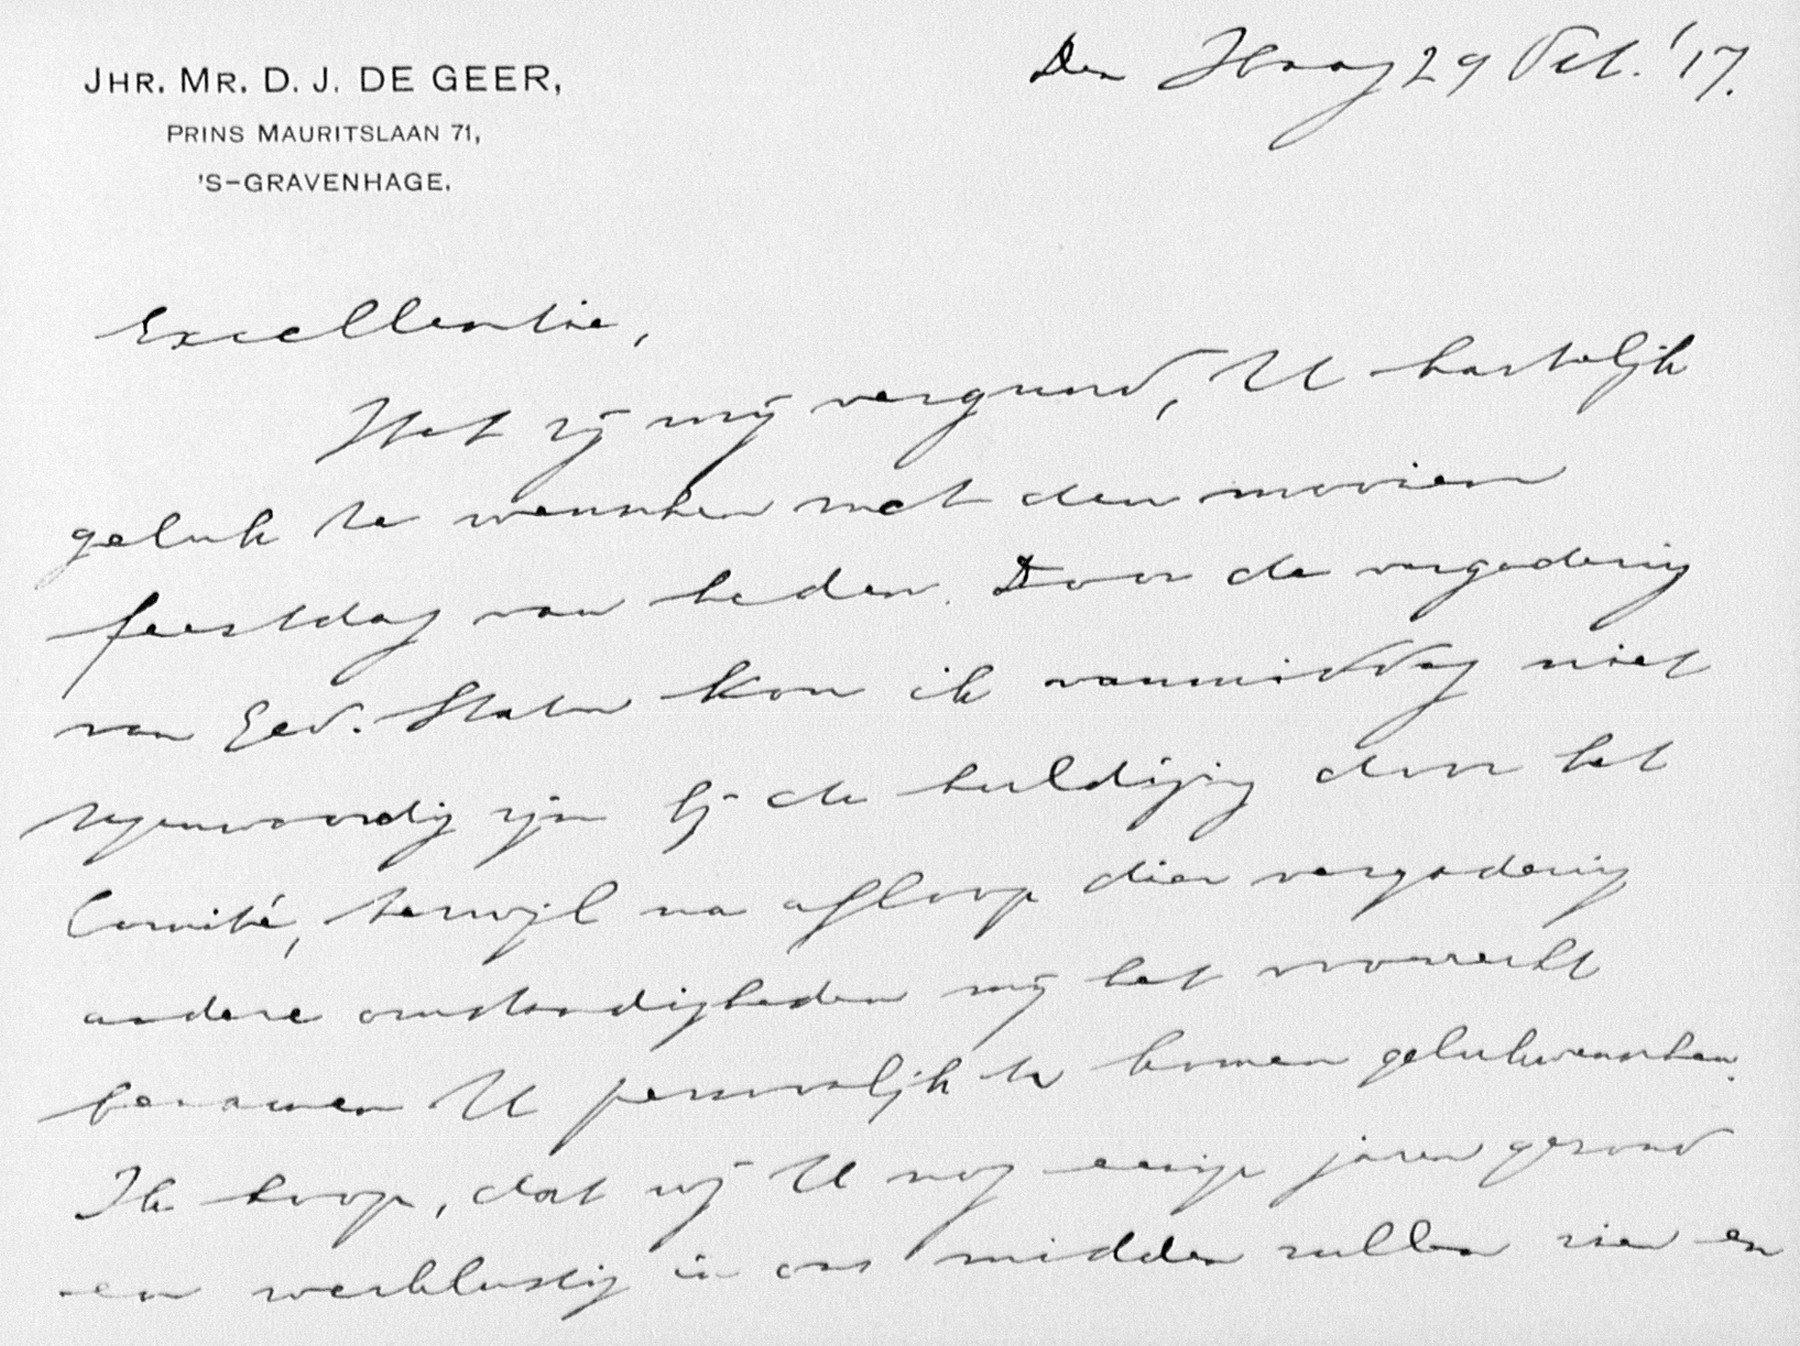 JHR. MR. D. J. DE GEER,
PRINS MAURITSLAAN 71,
'S-GRAVENHAGE.
Den Haag 29 Oct. '17.
Excellentie,
Het zij mij vergund, U hartelijk
geluk te wenschen met den mooien
feestdag van heden. Door de vergadering
van Ged. Staten kon ik vanmiddag niet
tegenwoordig zijn bij de huldiging door het
Comité, terwijl na afloop dier vergadering
andere omstandigheden mij het voorrecht
benamen U persoonlijk te komen gelukwenschen.
Ik hoop, dat wij U nog eenige jaren gezond
en werklustig in ons midden zullen zien en